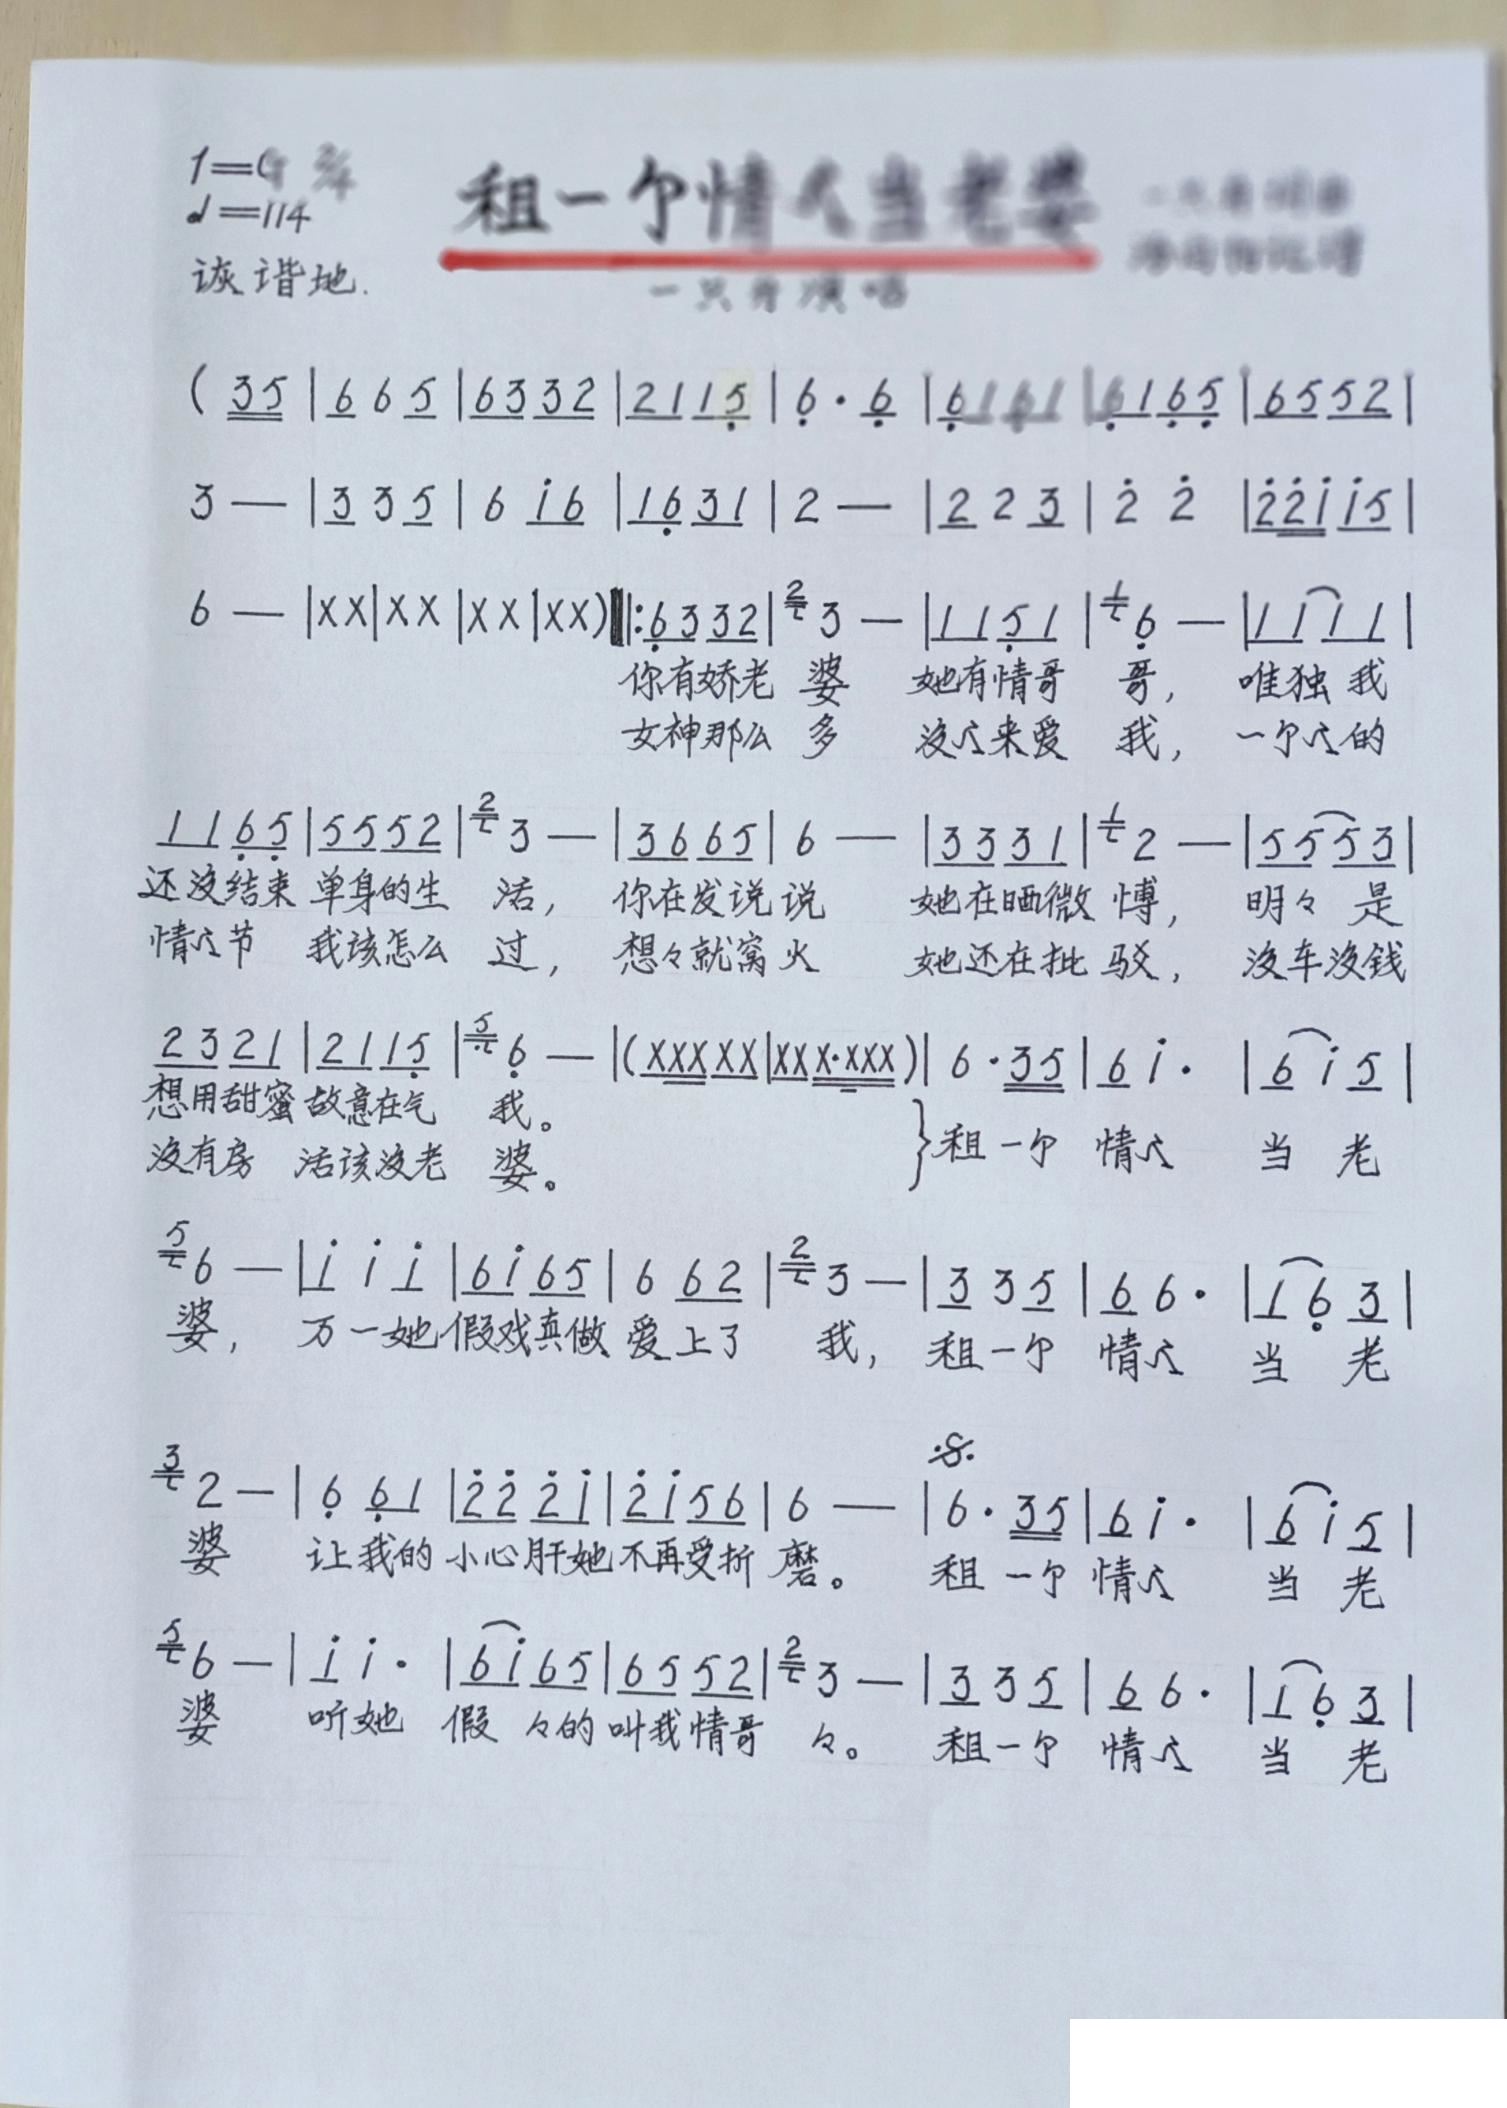 1=G 2/4
♩=114
诙谐地.
租一个情人当老婆
(35|665|6332|2115|6·6|6161|6165|6552|
3—|335|6i6|1631|2—|223|2̇2̇|2̇2̇ii5|
6—|XX|XX|XX|XX)‖:6332|3—|1151|6—|1111|
你有娇老 婆 她有情哥 哥, 唯独 我
女神那么 多 没人来爱 我, 一个人的
1165|5552|3—|3665|6—|3331|2—|5553|
还没结束 单身的生 活, 你在发说 说 她在晒微 博, 明々 是
情人节 我该怎么 过, 想々就窝 火 她还在批 驳, 没车没钱
2321|2115|6—|(XXXXX|XXX·XXX)|6·35|6i·|6i5|
想用甜蜜 故意在气 我。
没有房 活该没老 婆。 }租 一个 情人 当 老
6—|iii|6i65|662|3—|335|66·|163|
婆, 万一她 假戏真做 爱上了 我, 租一个 情人 当 老
𝄋
2—|661|2̇2̇2̇i|2̇i56|6—|6·35|6i·|6i5|
婆 让我的 小心肝她 不再受折 磨。 租 一个 情人 当 老
6—|ii·|6i65|6552|3—|335|66·|163|
婆 听她 假 々的 叫我情哥 々。 租一个 情人 当 老